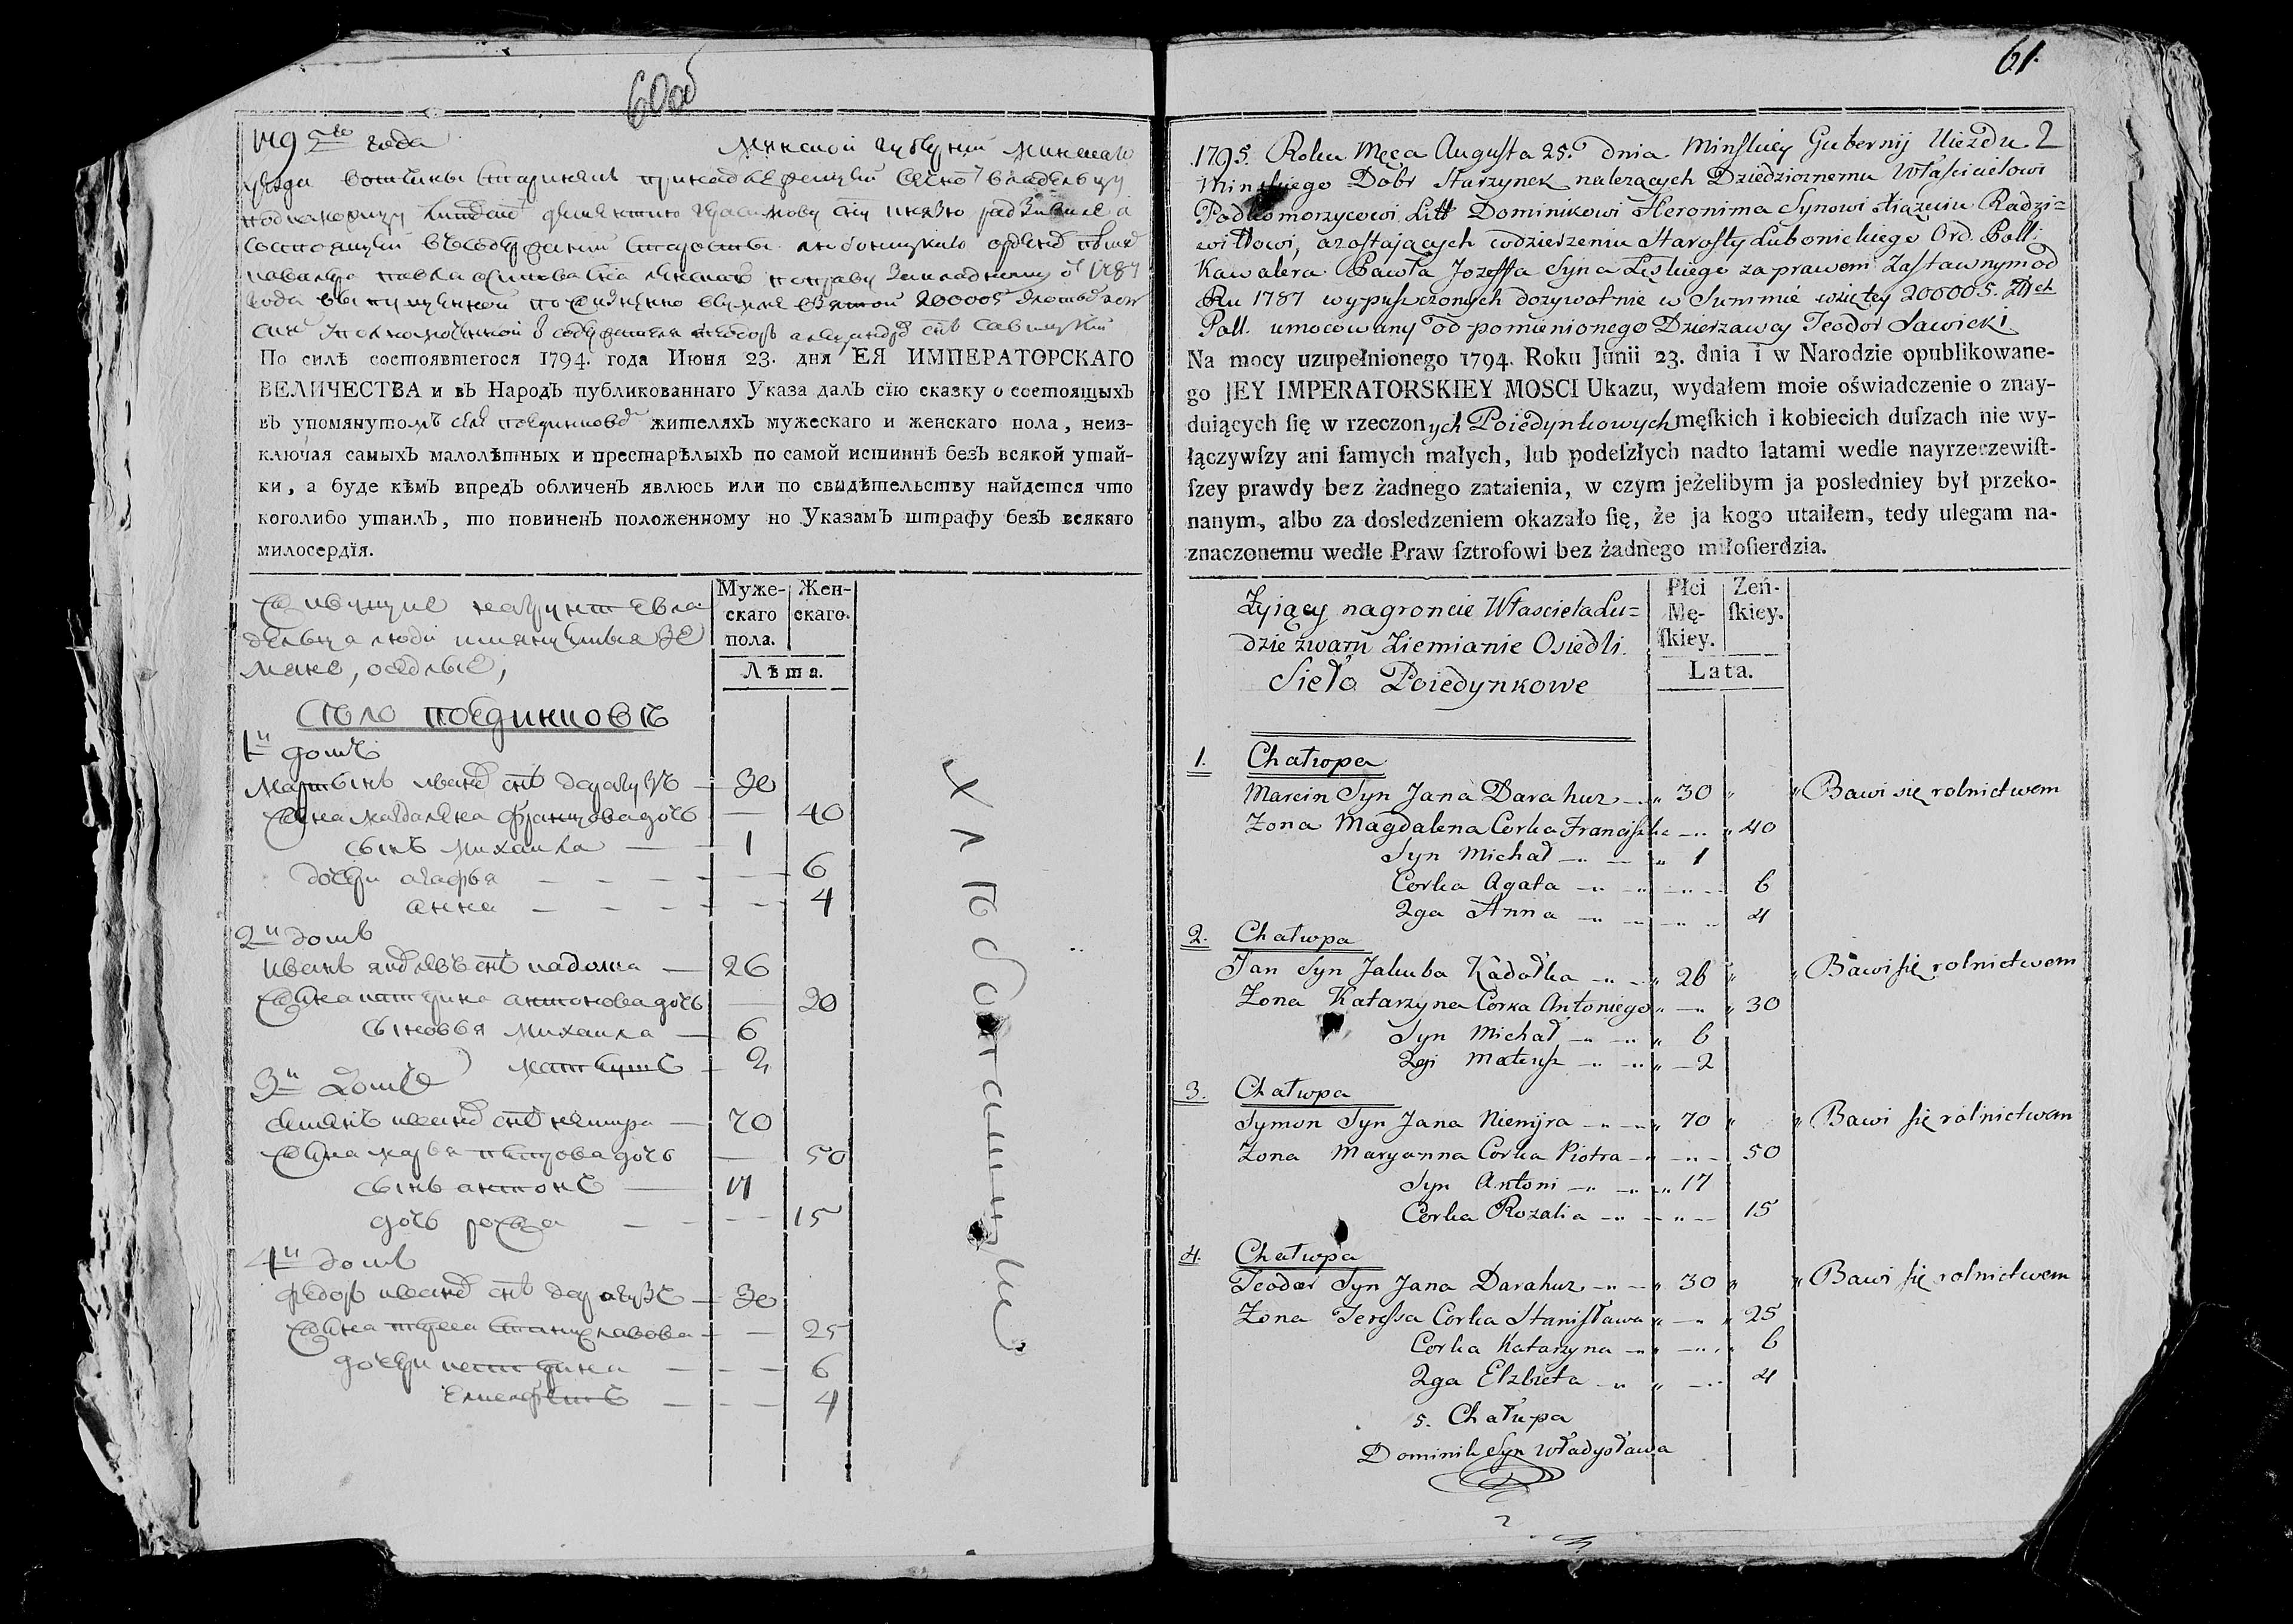 60об
1795го года Минской губернии Минскаго
По силѣ состоявшегося 1794. года Июня 23. дня ЕЯ ИМПЕРАТОРСКАГО
ВЕЛИЧЕСТВА и въ Народъ публикованнаго Указа далъ сїю сказку о состоящыхъ
въ упомянутомъ селе поединкове жителяхъ мужескаго и женскаго пола, неиз-
ключая самыхъ малолѣтных и престарѣлыхъ по самой истиннѣ безъ всякой утай-
ки, а буде кѣмъ впредъ обличенъ явлюсь или по свидѣтельству найдется что
коголибо утаилъ, то повиненъ положенному но Указамъ штрафу безъ всякаго
милосердїя.
Муже-
скаго
пола.
Жен-
скаго.
Лѣта.
мяне, оседлые,
Село поединковъ
1й домъ
Мартынъ ивановъ снъ дарагузъ 30
Жена магдалена францова дочь 40
сынъ михаила 1
дочери агафья 6
анна 4
2й домъ
иванъ яковлевъ снъ кадолка 26
Жена катерина антонова дочь 30
сыновья михаила 6
матеушъ 2
3й домъ
семенъ ивановъ снъ немира 70
Жена марья петрова дочь 50
сынъ антонъ 17
дочь розалиа 15
4й домъ
федоръ ивановъ снъ дарагузъ 30
Жена тереса станиславова 25
дочери катерина 6
елисафетъ 4
хлебопашцы
61.
2
1795. Roku Męca Augusta 25.o dnia Minskiey Gubernij Uiezdu
Minskiego Dobr Starzynek nalezących Dziedzicznemu Właścicielowi
Podkomorzycowi Litt Dominikowi Heronima Synowi Xiązęciu Radzi=
wiłłowi, azostaiących wdzierzeniu Starosty Lubonickiego Ord. Poll:
Kawalera Pawła Jozeffa Syna Lęskiego za prawem Zastawnym od
Ru 1787 wypuszczonych dozywotnie w Summie wzię­tey 200005. Złłch
Poll. umocowany od pomienionego Dzierzawcy Teodor Sawicki
Na mocy uzupełnionego 1794. Roku Junii 23. dnia i w Narodzie opublikowane-
go JEY IMPERATORSKIEY MOSCI Ukazu, wydałem moie oświadczenie o znay-
duiących ſię w rzeczonych Poiedynkowych męſkich i kobiecich duſzach nie wy-
łączywſzy ani ſamych małych, lub podeſzłych nadto latami wedle nayrzeczewiſt-
ſzey prawdy bez żadnego zataienia, w czym jeżelibym ja posledniey był przeko-
nanym, albo za dosledzeniem okazało ſię, że ja kogo utaiłem, tedy ulegam na-
znaczonemu wedle Praw ſztrofowi bez żadnego miłoſierdzia.
Zyiący nagroncie Własciciela Lu=
dzie zwani Ziemianie Osiedli.
Sieło Poiedynkowe
Płci
Mę-
ſkiey.
Zeń-
ſkiey.
Lata.
1. Chałupa
Marcin Syn Jana Darahuz 30 Bawi się rolnictwem
Zona Magdalena Corka Franciszka 40
Syn Michał 1
Corka Agata 6
2ga Anna 4
2. Chałupa
Jan Syn Jakuba Kadołka 26 Bawi się rolnictwem
Zona Katarzyna Corka Antoniego 30
Syn Michał 6
2gi Mateusz 2
3. Chałupa
Symon Syn Jana Niemjra 70 Bawi się rolnictwem
Zona Maryanna Corka Piotra 50
Syn Antoni 17
Corka Rozalia 15
4. Chałupa
Teodor Syn Jana Darahuz 30 Bawi się rolnictwem
Zona Teressa Corka Stanisława 25
Corka Katarzyna 6
2ga Elzbieta 4
5. Chałupa
Dominik Syn Władysława